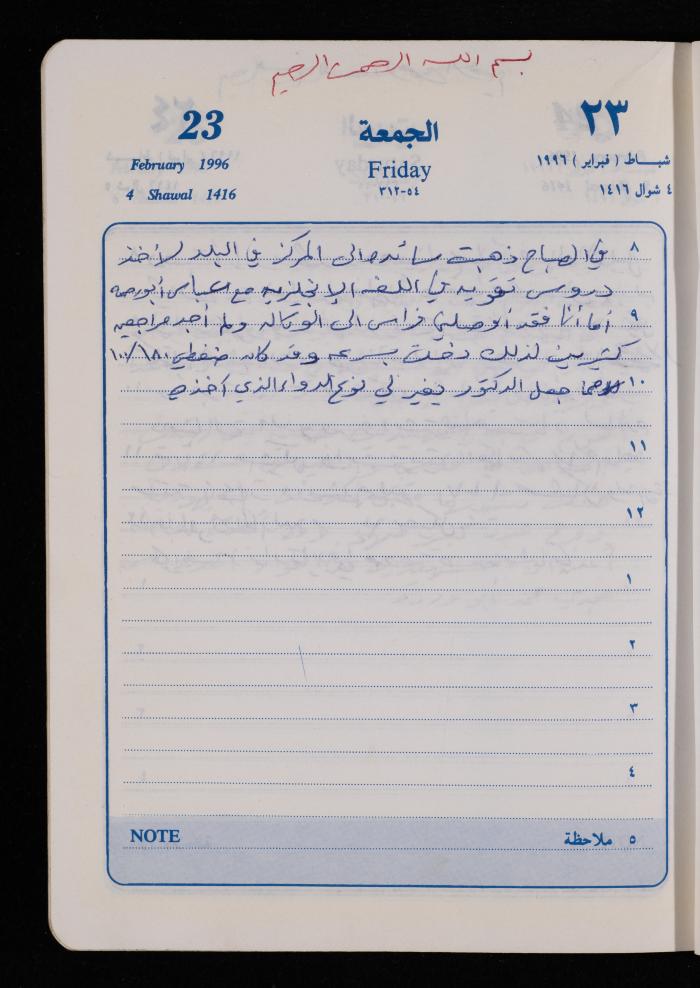 بسم الله الرحمن الرحيم
23
الجمعة
٢٣
February 1996
Friday
شباط ( فبراير ) ١٩٩٦
4 Shawal 1416
٥٤-٣١٢
٤ شوال ١٤١٦
٨ في الصباح ذهبت سائده الى المركز في البلد لأخذ
دروس تقويه في اللغه الإنجليزيه مع عباس أبو رحمه
٩ أما أنا فقد أوصلني فراس الى الوكاله ولم أجد مراجعين
كثيرين لذلك دخلت بسرعه وقد كان ضغطي ١٨٠/١٠٠
١٠ مما جعل الدكتور يغير لي نوع الدواء الذي آخذه
١١
١٢
١
٢
٣
٤
NOTE
٥ ملاحظة